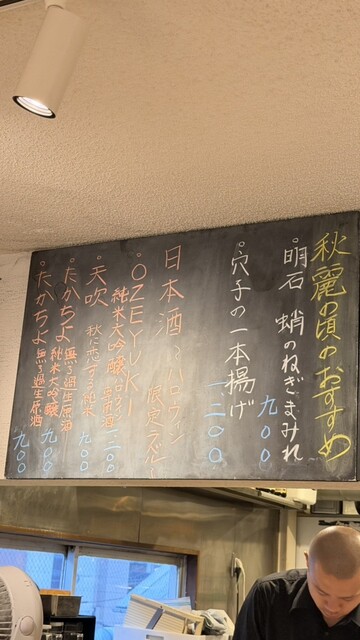 秋麗の頃のおすすめ
。明石 蛸のねぎまみれ
九〇〇
。穴子の一本揚げ
一、二〇〇
日本酒〜ハロウィン
限定ラベル
。OZEYUKI
純米大吟醸 ハロウィン
一、二〇〇
。天吹 秋に恋する純米
九〇〇
。たかちよ 無ろ過生原酒
純米大吟醸
九〇〇
。たかちよ 無ろ過生原酒
九〇〇